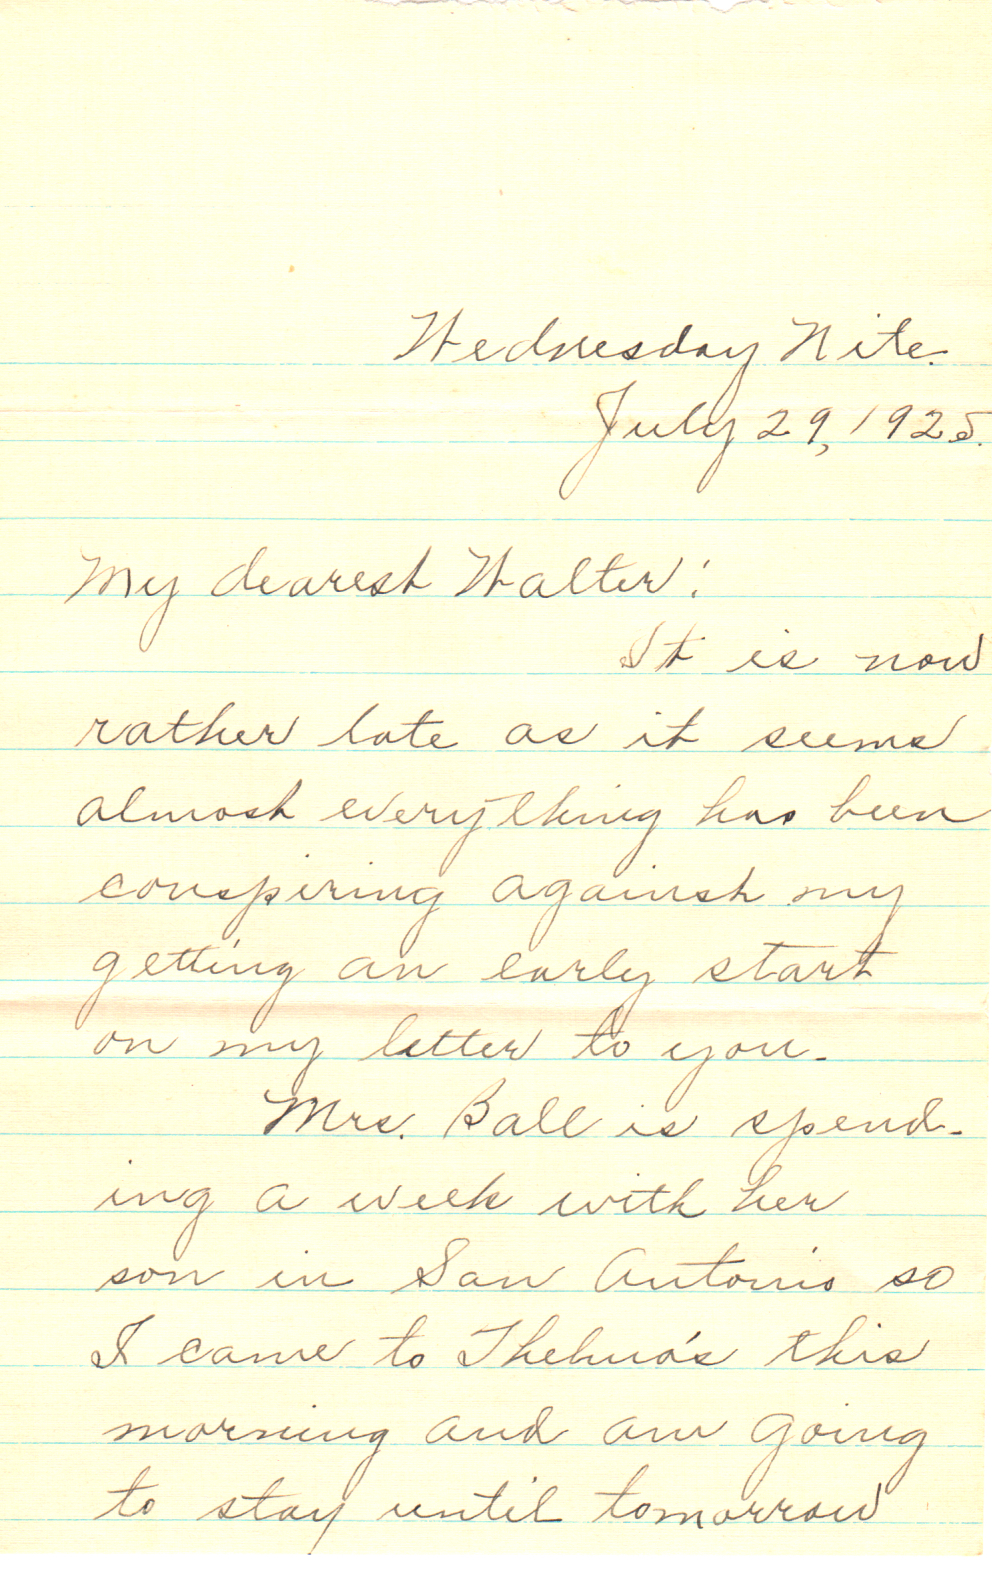 Wednesday Nite.
July 29, 1925.
My dearest Walter:
It is now
rather late as it seems
almost everything has been
conspiring against my
getting an early start
on my letter to you.
Mrs. Ball is spend-
ing a week with her
son in San Antonio so
I came to Thelma's this
morning and am going
to stay until tomorrow